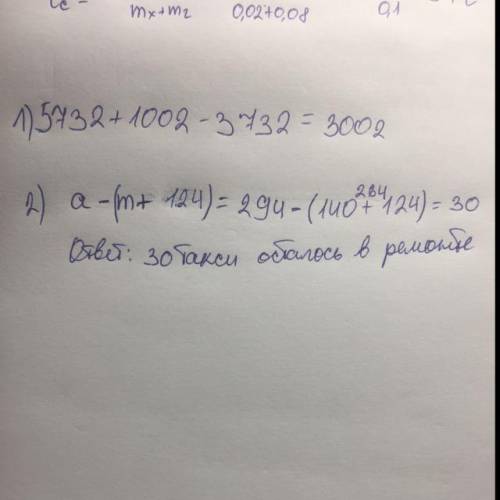 mx+m2 0,02+0,08 0,1
1) 5732+1002-3732=3002
264
2) a-(m+124)=294-(140+124)=30
Ответ: 30 такси осталось в ремонте